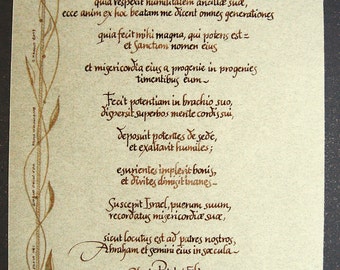 quia respexit humilitatem ancillæ suæ,
ecce enim ex hoc beatam me dicent omnes generationes
quia fecit mihi magna, qui potens est~
et Sanctum nomen eius
et misericordia eius a progenie in progenies
timentibus eum~
Fecit potentiam in brachio suo,
dispersit superbos mente cordis sui;
deposuit potentes de sede,
et exaltavit humiles;
esurientes implevit bonis,
et divites dimisit inanes~
Suscepit Israel, puerum suum,
recordatus misericordiæ suæ,
sicut locutus est ad patres nostros,
Abraham et semini eius in sæcula~